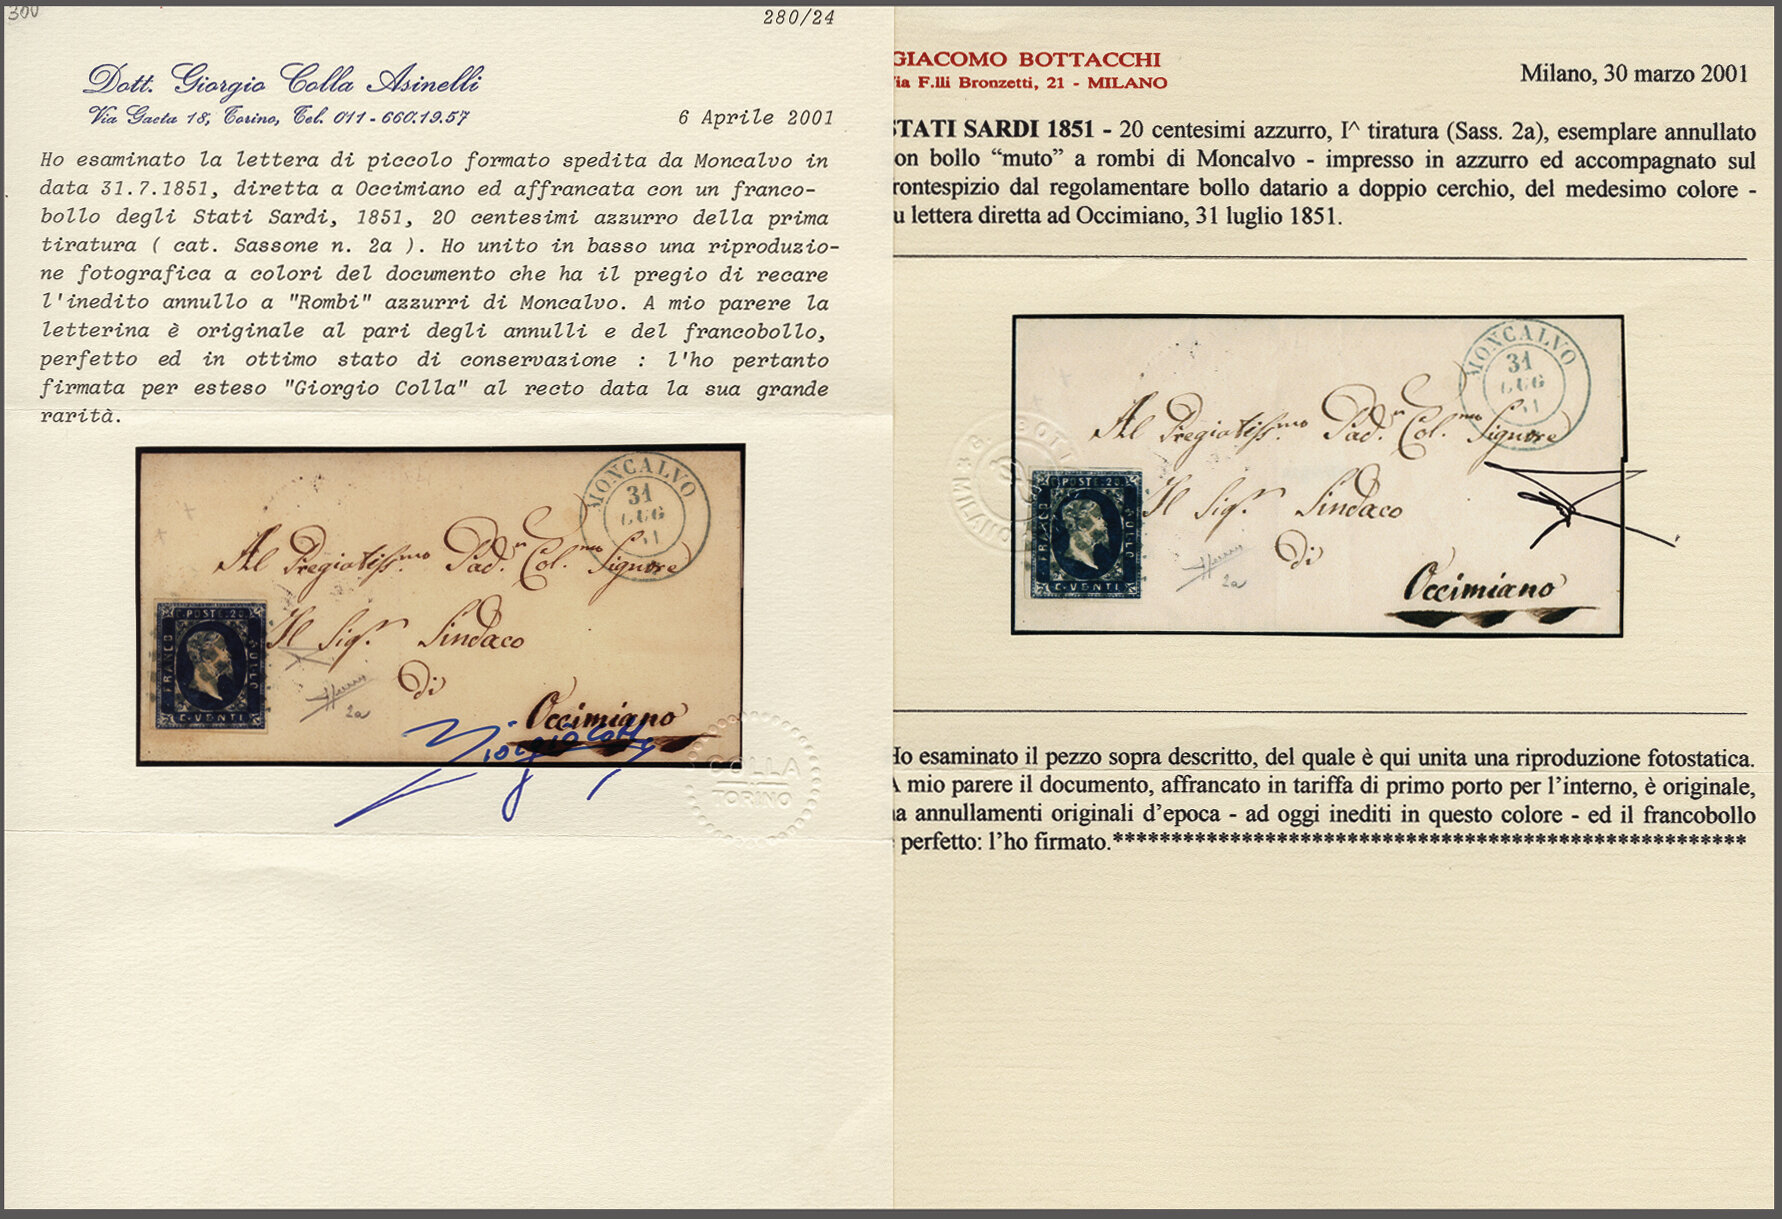 300
280/24
Dott. Giorgio Colla Asinelli
Via Gaeta 18, Torino, Tel. 011-660.19.57
6 Aprile 2001
Ho esaminato la lettera di piccolo formato spedita da Moncalvo in
data 31.7.1851, diretta a Occimiano ed affrancata con un franco-
bollo degli Stati Sardi, 1851, 20 centesimi azzurro della prima
tiratura ( cat. Sassone n. 2a ). Ho unito in basso una riproduzio-
ne fotografica a colori del documento che ha il pregio di recare
l'inedito annullo a "Rombi" azzurri di Moncalvo. A mio parere la
letterina è originale al pari degli annulli e del francobollo,
perfetto ed in ottimo stato di conservazione : l'ho pertanto
firmata per esteso "Giorgio Colla" al recto data la sua grande
rarità.
MONCALVO
31
LUG
51
Al Pregiatiss.mo Pad.n Col.mo Signore
Il Sig.r Sindaco
di
Occimiano
C. POSTE. 20
FRANCO
BOLLO
C. VENTI
2a
Giorgio Colla
COLLA
TORINO
GIACOMO BOTTACCHI
ia F.lli Bronzetti, 21 - MILANO
Milano, 30 marzo 2001
STATI SARDI 1851 - 20 centesimi azzurro, I^ tiratura (Sass. 2a), esemplare annullato
on bollo “muto” a rombi di Moncalvo - impresso in azzurro ed accompagnato sul
rontespizio dal regolamentare bollo datario a doppio cerchio, del medesimo colore -
u lettera diretta ad Occimiano, 31 luglio 1851.
MONCALVO
31
LUG
51
Al Pregiatiss.mo Pad.n Col.mo Signore
Il Sig.r Sindaco
di
Occimiano
G. BOTT
MILANO
C. POSTE. 20
FRANCO
BOLLO
C. VENTI
2a
Ho esaminato il pezzo sopra descritto, del quale è qui unita una riproduzione fotostatica.
A mio parere il documento, affrancato in tariffa di primo porto per l’interno, è originale,
ha annullamenti originali d’epoca - ad oggi inediti in questo colore - ed il francobollo
perfetto: l’ho firmato.******************************************************